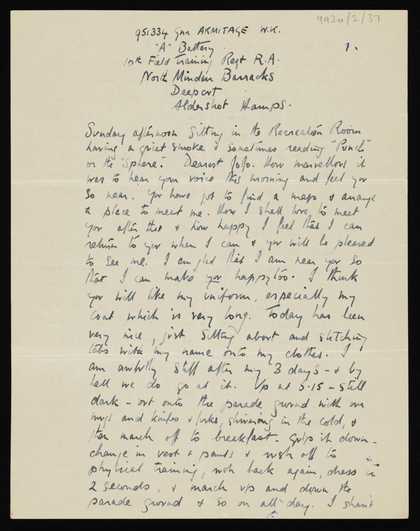 9920/2/37
951334 Gnr ARMITAGE W.K.
"A" Battery 1.
Field Training Regt R.A.
North Minden Barracks
Deepcut
Aldershot Hamps.
Sunday afternoon sitting in the Recreation Room
having a quiet smoke & sometimes reading 'Punch'
or the 'Sphere'. Dearest JoJo. How marvellous it
was to hear your voice this morning and feel you
so near. You have got to find a map & arrange
a place to meet me. How I shall love to meet
you after this & how happy I feel that I can
return to you when I can & you will be pleased
to see me. I am glad that I am near you so
that I can make you happy too. I think
you will like my uniform, especially my
coat which is very long. Today has been
very nice, just sitting about and stitching
tabs with my name onto my clothes. I
am awfully stiff after my 3 days - & by
hell we do go at it. Up at 5-15 - still
dark - out onto the parade ground with our
mugs and knives & forks, shivering in the cold, &
then march off to breakfast. Gulp it down -
change in vest & pants & rush off to
physical training, rush back again, dress in
2 seconds, & march up and down the
parade ground & so on all day. I shan't